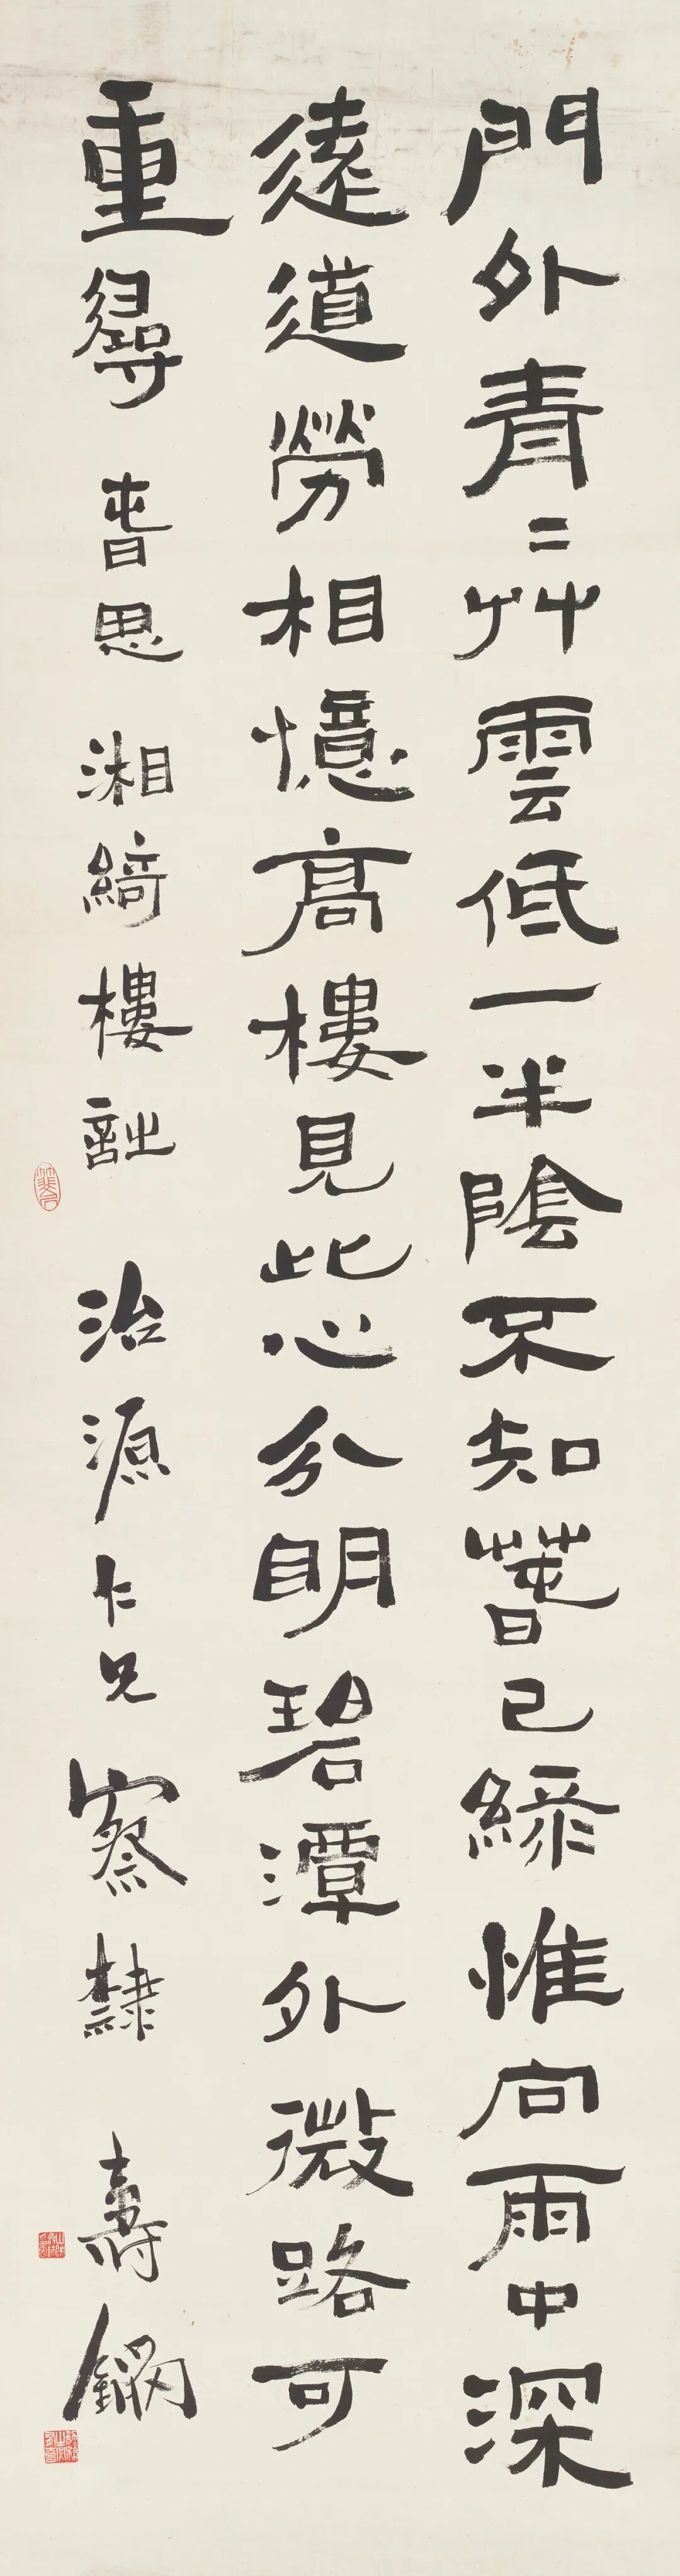 門外青〻艸雲低一半陰不知萅已綠惟向雨中深
遠道勞相憶高樓見此心分明碧潭外微路可
重尋 旾思 湘綺樓詩 治源仁兄察隸 壽鑈